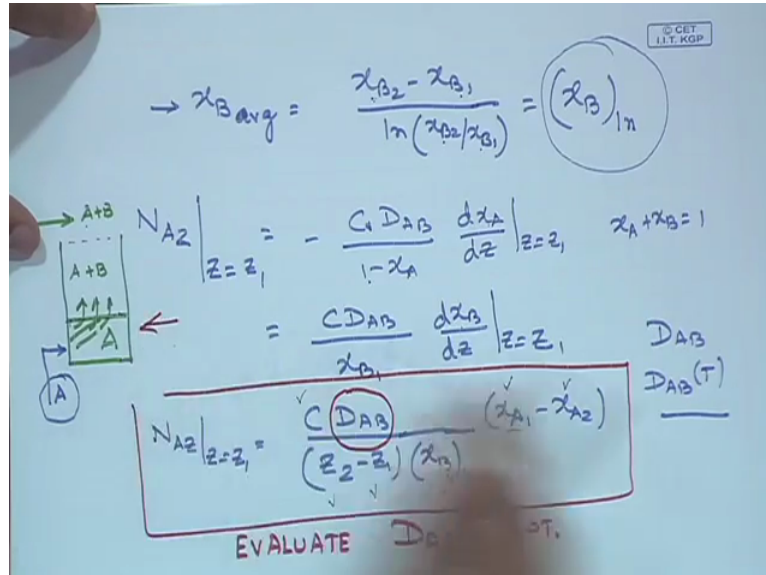 © CET
I.I.T. KGP
→ x_B avg = (x_B2 - x_B1) / ln(x_B2/x_B1) = (x_B)_ln
A+B
A+B
A
A
N_AZ |_Z=Z1 = - C D_AB / (1-x_A) dx_A/dz |_Z=Z1 x_A + x_B = 1
= C D_AB / x_B1 dx_B/dz |_Z=Z1
D_AB
D_AB(T)
N_AZ |_Z=Z1 = C D_AB / (Z2-Z1)(x_B) (x_A1 - x_A2)
EVALUATE